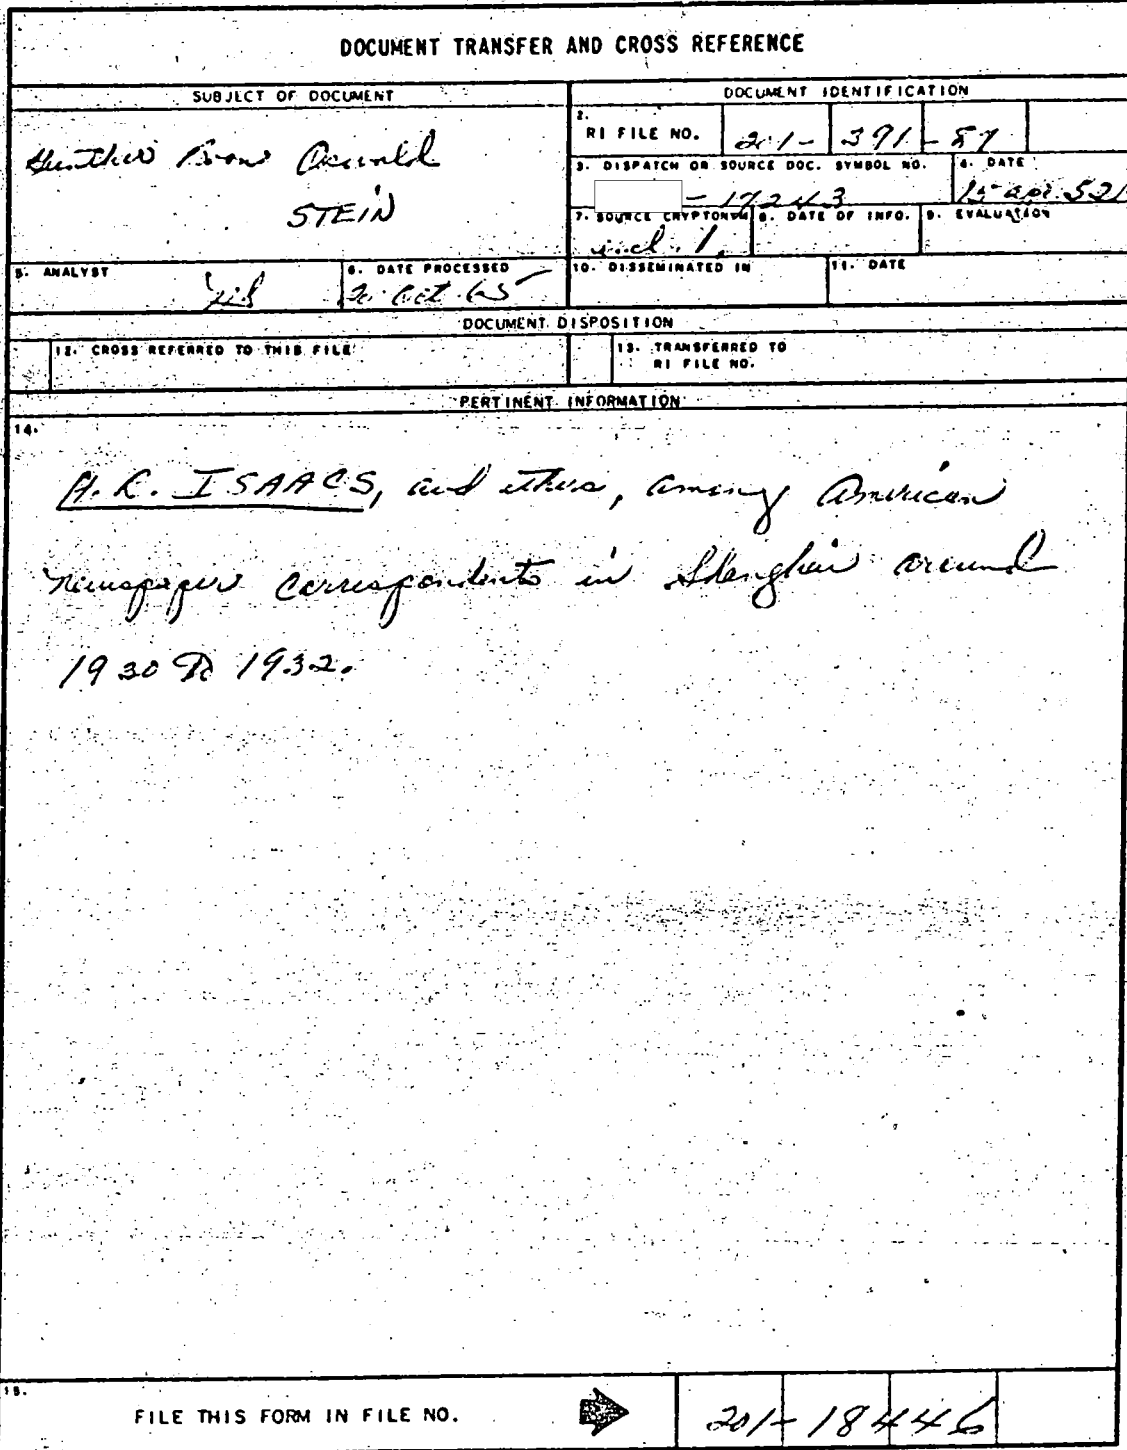 DOCUMENT TRANSFER AND CROSS REFERENCE
SUBJECT OF DOCUMENT
DOCUMENT IDENTIFICATION
Oswald
STEIN
2.
RI FILE NO. 201- 391 - 87
3. DISPATCH OR SOURCE DOC. SYMBOL NO.
4. DATE
- 17243
15 apr 52
7. SOURCE CRYPTONYM
8. DATE OF INFO.
9. EVALUATION
incl. 1.
5. ANALYST
6. DATE PROCESSED
20 Oct 65
10. DISSEMINATED IN
11. DATE
DOCUMENT DISPOSITION
12. CROSS REFERRED TO THIS FILE
13. TRANSFERRED TO
RI FILE NO.
PERTINENT INFORMATION
14.
H. R. ISAACS, and others, among American
newspaper correspondents in Shanghai around
1930 to 1932.
15.
FILE THIS FORM IN FILE NO.
201-18446